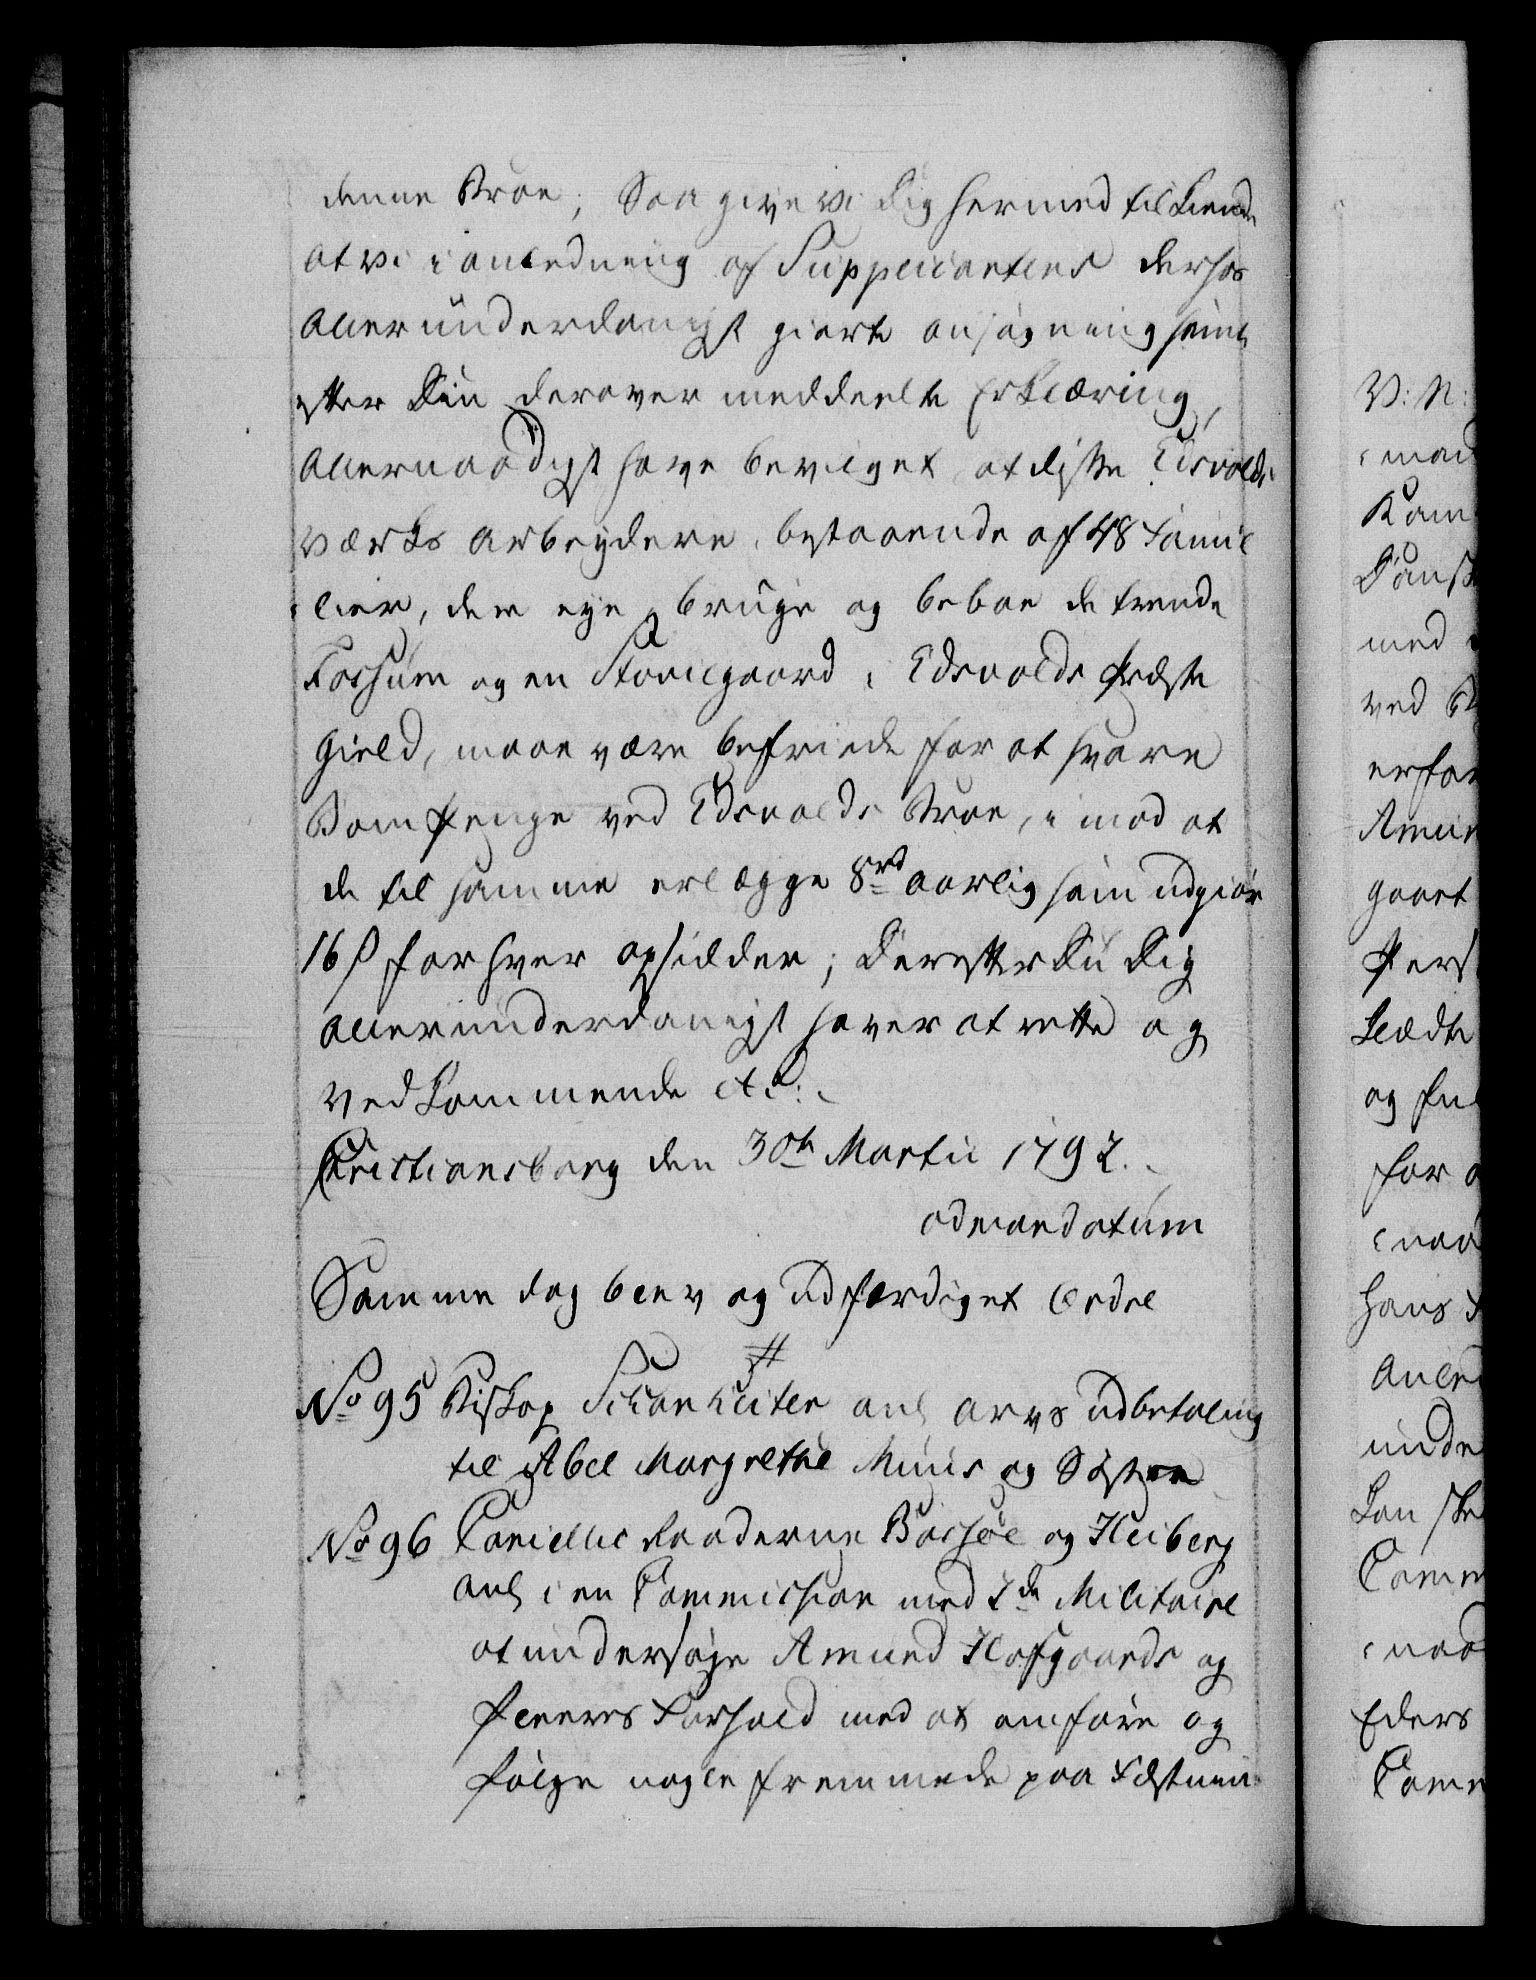 denne Broe; Saa give Vi Dig hermed tilkiende
at vi i anledning af Supplicantens derhos
allerunderdanigst giorte ansøgning samt
efter Din derover meddeelte Erklæring,
allernaadigst have bevilget at disse Eisvolds
Værks arbeydere, bestaaende af 48 Famil
lier, der eye, bruge og beboe de trende
Fossum og en Stovilgaard i Edsvolds Præste
Gield, maae være befriede for at svare
Bom Penge ved Edsvolds Broe, imod at
de til samme erlægge 8 rd aarlig som udgiør
16 s for hver opsidder; Derefter Du Dig
allerunderdanigst haver at rette og
vedkommende etc:
Christiansborg den 30te Martii 1792.
ad mandatum
Samme dag blev og udfærdiget Ordre
No 95 Biskop Schønheiter anl arvs udbetaling
til Abel Margrethe Muus og Søstre
No 96 Cancellie Raaderne Borhøe og Heiberg
anl i en Commission med 2de Militaire
at undersøge Amund Hofgaards og
fleeres Forhold med at omføre og
følge nogle fremmede paa Fæstnin

V: N:
Kam
Dansk
med
ved
erfar
Amun
gaaet
Pers
og
for
hans
unde
Comm
Eders
Comm